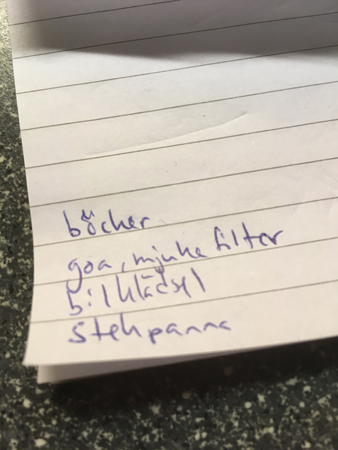 böcker
goa, mjuka filtar
bilklädsel
stekpanna